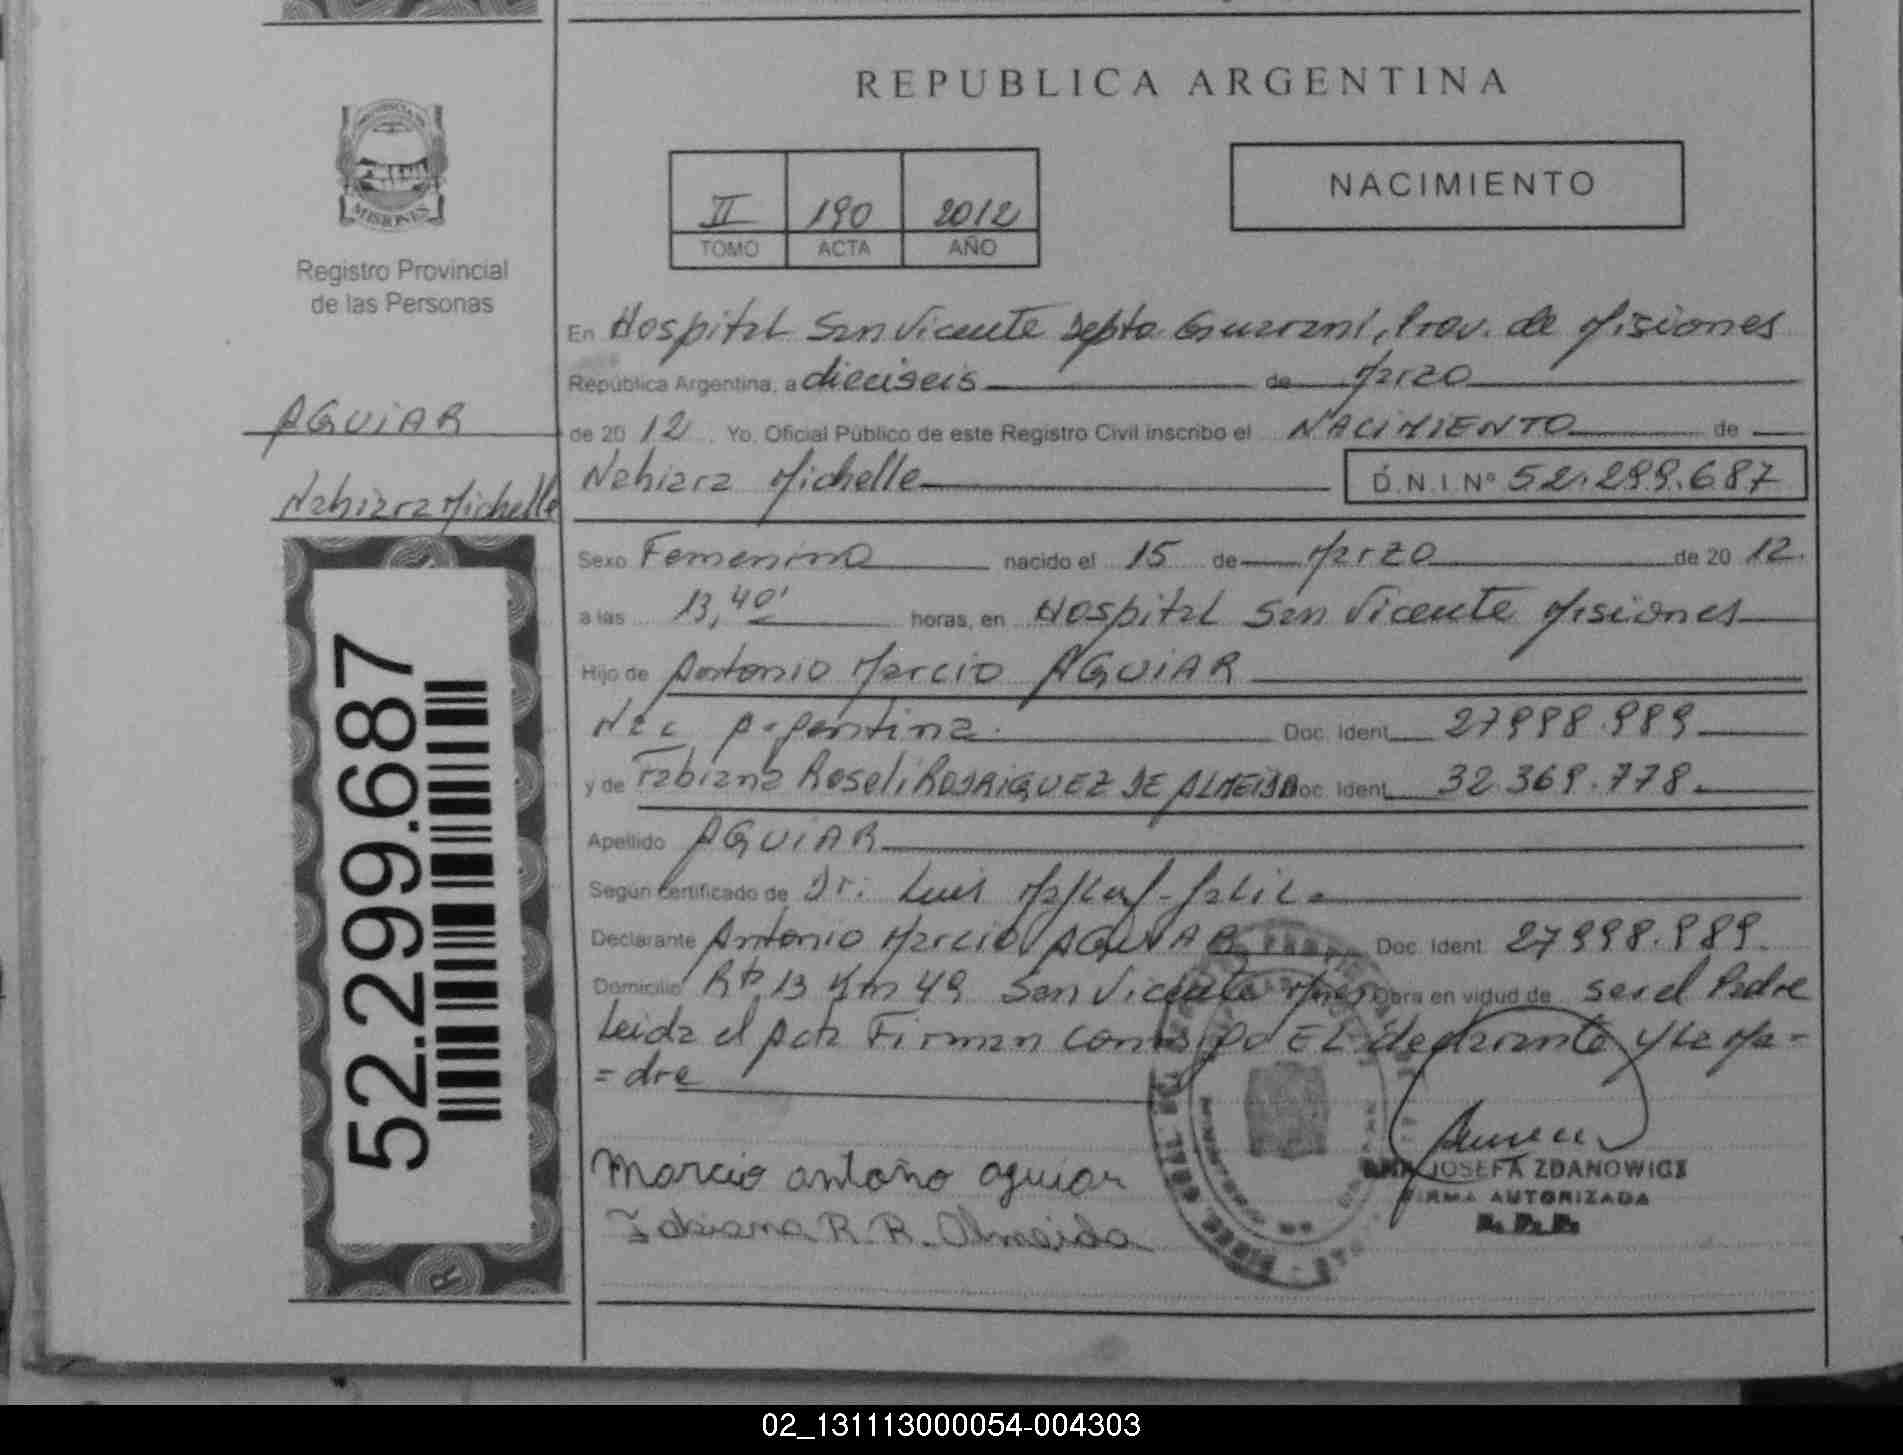 REPUBLICA ARGENTINA
MISIONES
Registro Provincial
de las Personas
II 190 2012
TOMO ACTA AÑO
NACIMIENTO
AGUIAR
Nahiara Michelle
52.299.687
En Hospital San Vicente Depto Guarani, Prov. de Misiones
República Argentina, a dieciseis de Marzo
de 20 12 Yo, Oficial Público de este Registro Civil inscribo el NACIMIENTO de
Nahiara Michelle D.N.I. Nº 52.299.687
Sexo Femenino nacido el 15 de Marzo de 20 12.
a las 13,40' horas, en Hospital San Vicente Misiones
Hijo de Antonio Marcio AGUIAR
Nac Argentina. Doc. Ident. 27998.989
y de Fabiana Roseli RODRIGUEZ DE ALMEIDA Doc. Ident. 32.369.778.
Apellido AGUIAR
Según certificado de Dr. Luis
Declarante Antonio Marcio AGUIAR Doc. Ident. 27998.989.
Domicilio Rta 13 Km 49 San Vicente Mnes Obra en virtud de ser el Padre
Leida el Acta Firman conmigo EL declarante y La Ma=
=dre
Marcio antoño aguiar
Fabiana R.R. Almeida
JOSEFA ZDANOWICZ
FIRMA AUTORIZADA
R. P. P.
02_131113000054-004303